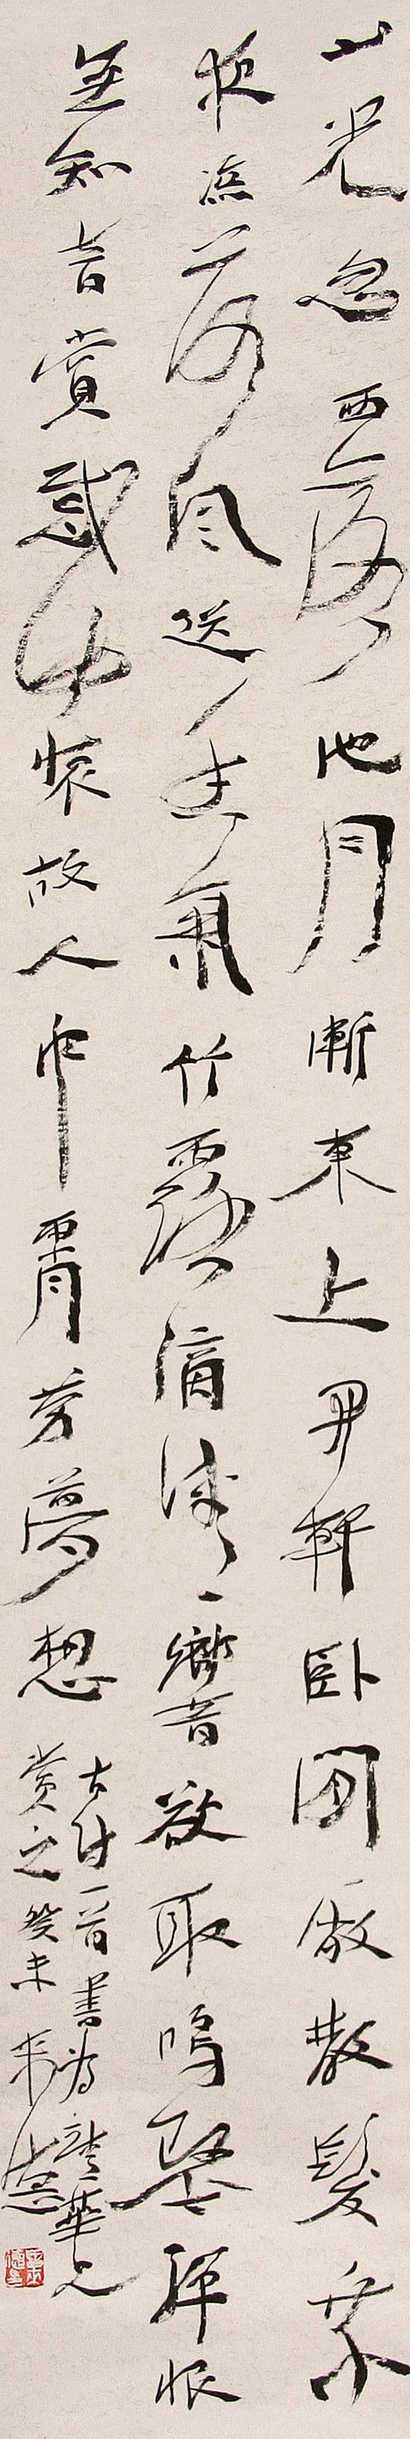 山光忽西落池月漸東上開軒臥閒敞散髮乘
夜涼荷風送香氣竹露滴清響欲取鳴琴彈恨
無知音賞感此懷故人中霄勞夢想
古詩一首書為華兄
賞之癸未